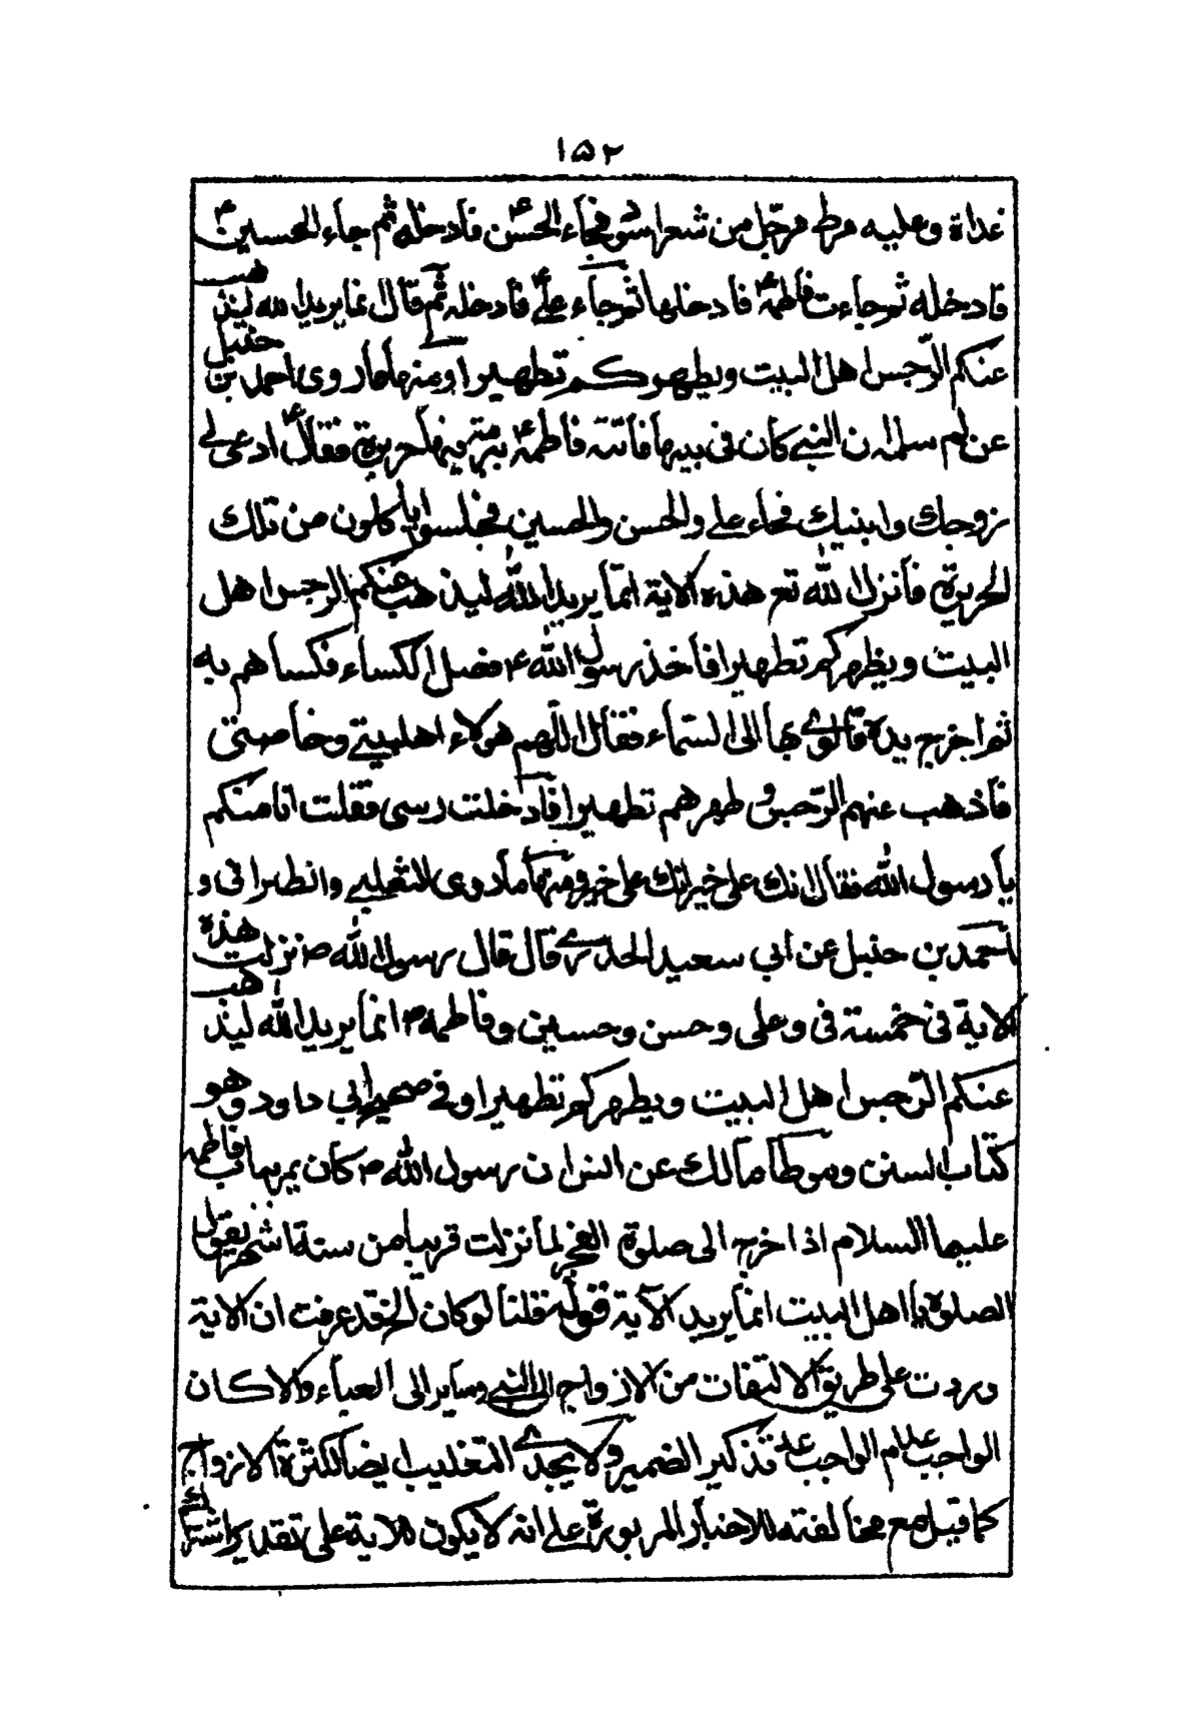 ۱۵۲
غداة وعليه مرط مرحّل من شعر اسود فجاء الحسنؑ فادخله ثم جاء الحسينؑ
فادخله ثم جاءت فاطمةؑ فادخلها ثم جاء عليؑ فادخله ثم قال انما يريد الله ليذهب
عنكم الرّجس اهل البيت ويطهركم تطهيرا ومنها ما روى احمد بن حنبل
عن ام سلمة ان النبي كان في بيتها فاتته فاطمةؑ ببرمة فيها حريرة فقالؑ ادعى لي
زوجك وابنيك فجاء علي والحسن والحسين فجلسوا يأكلون من تلك
الحريرة فأنزل الله تع هذه الاية انمّا يريد الله ليذهب عنكم الرجس اهل
البيت ويطهركم تطهيرا فأخذ رسول الله ص فضل الكساء فكساهم به
ثم اخرج يده فالوى بها الى السّماء فقال اللّهم هولاء اهلبيتي وخاصتي
فأذهب عنهم الرّجس و طهرهم تطهيرا فادخلت رسى فقلت انا منكم
يا رسول الله فقال انك على خير انك على خير ومنها ما روى الثعلبي والطبراني و
احمد بن حنبل عن ابي سعيد الخدري قال قال رسول الله ص نزلت هذه
الاية في خمسة في وعلى وحسن وحسين وفاطمة ص انما يريد الله ليذهب
عنكم الرّجس اهل البيت ويطهركم تطهيرا وفي صحيح ابي داود وهو
كتاب السنن وموطأ مالك عن انس ان رسول الله ص كان يمر بباب فاطمة
عليها السلام اذا خرج الى صلوة الفجر لما نزلت قريبا من ستة اشهر يقول
الصلوة يا اهل البيت انما يريد الآية قوله قلنا لو كان الخ قد عرفت ان الاية
وردت على طريق الالتفات من الازواج الى النبي وساير الى العباء والا كان
الواجب عليه ام الواجب عليه تذكير الضمير ولا يجدي التغليب ايضا لكثرة الازواج
كما قيل مع مخالفته للاخبار المزبورة على انه لا يكون للاية على تقدير اشتراك